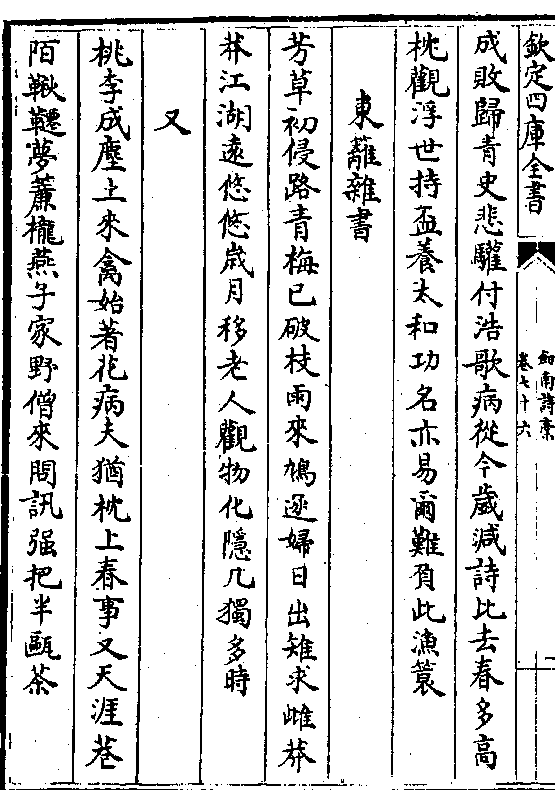 欽定四庫全書
劍南詩稾
卷七十六
一
成敗歸青史悲驩付浩歌病從今歲減詩比去春多高
枕觀浮世持盃養太和功名亦易爾難負此漁簑
東籬雜書
芳草初侵路青梅已破枝雨來鳩逐婦日出雉求雌莽
莽江湖遠悠悠歲月移老人觀物化隱几獨多時
又
桃李成塵土來禽始著花病夫猶枕上春事又天涯巷
陌鞦韆夢簾櫳燕子家野僧來問訊强把半甌茶